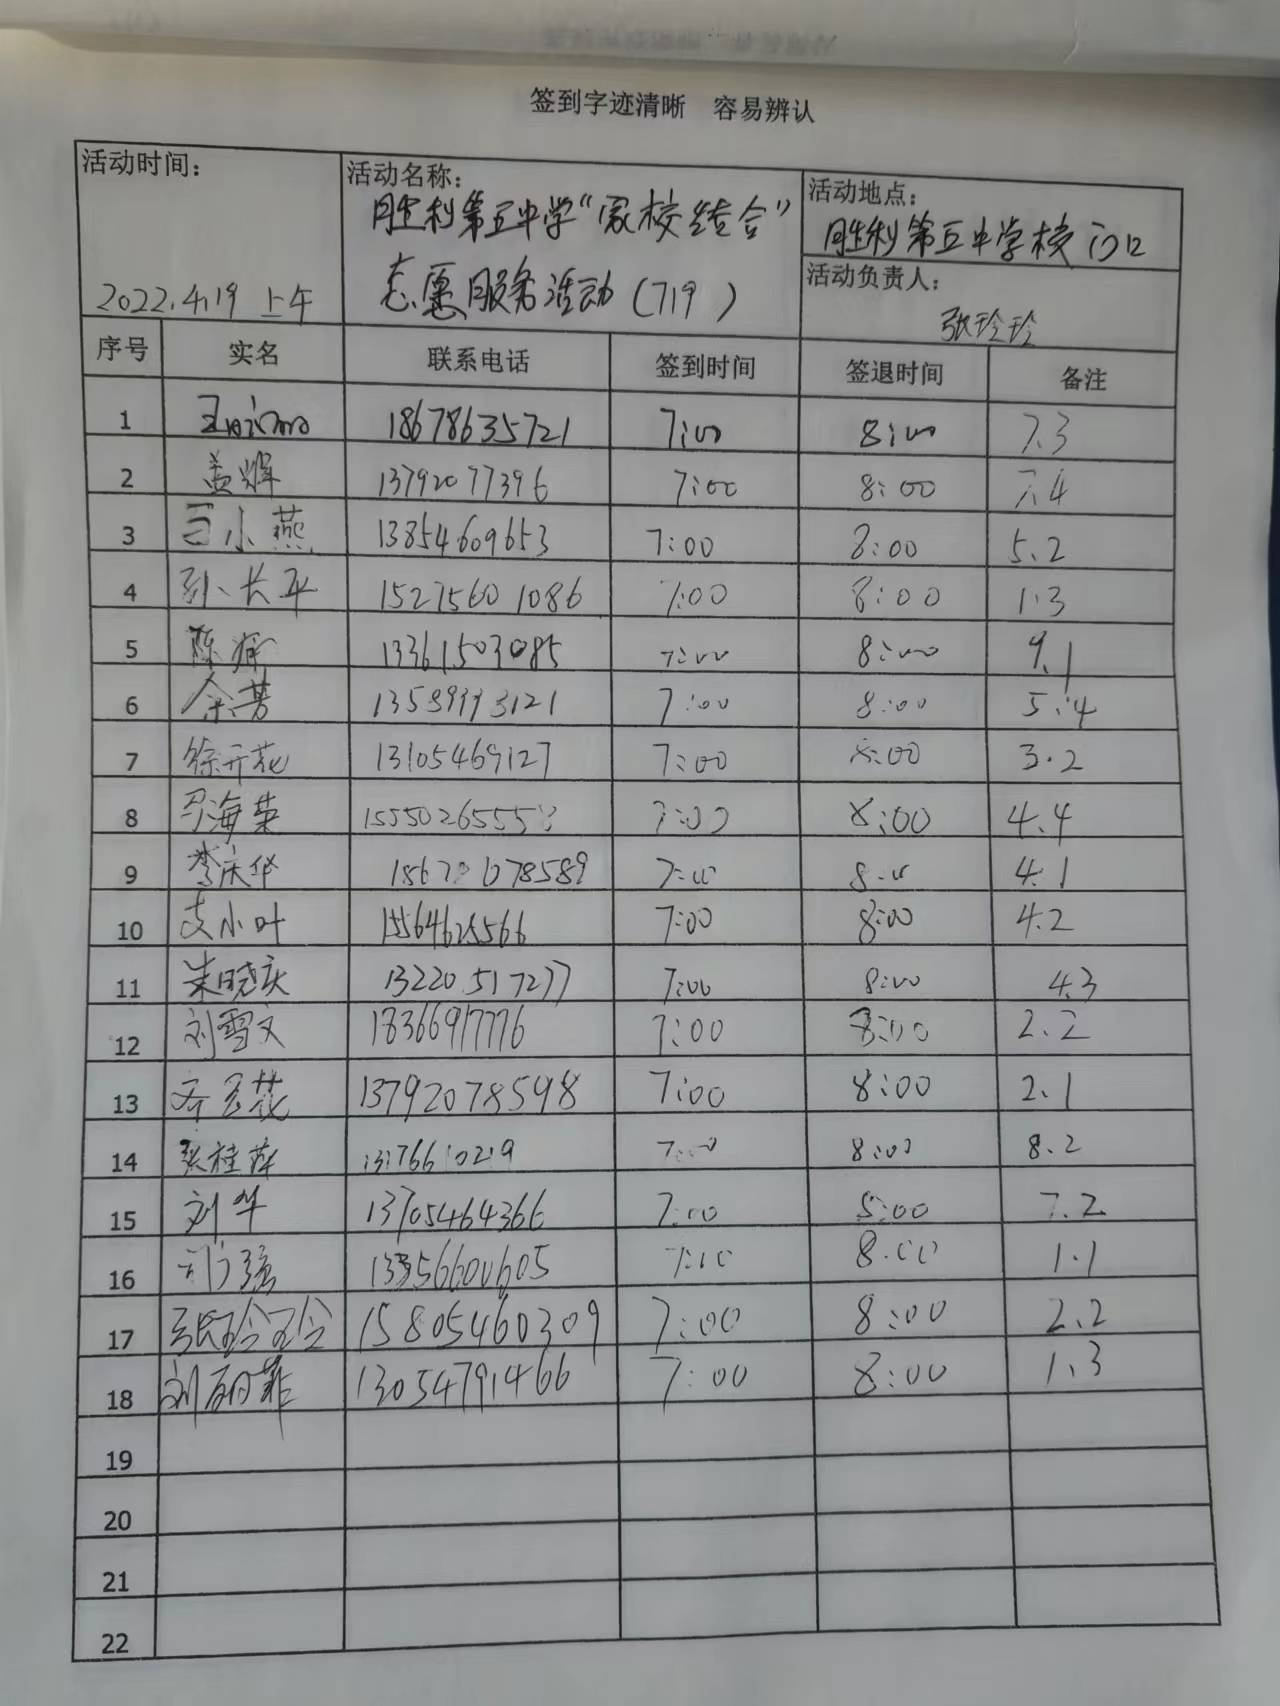 签到字迹清晰 容易辨认
活动时间：
2022.4.19 上午
活动名称：
胜利第五中学“家校结合”
志愿服务活动（719）
活动地点：
胜利第五中学校门口
活动负责人：
张玲玲
序号 实名 联系电话 签到时间 签退时间 备注
1 18678635721 7:00 8:00 7.3
2 盖辉 13792077396 7:00 8:00 7.4
3 小燕 13854609653 7:00 8:00 5.2
4 孙长平 15275601086 7:00 8:00 1.3
5 陈 13361503085 7:00 8:00 9.1
6 余芳 13589993121 7:00 8:00 5.4
7 徐开花 13105469127 7:00 8:00 3.2
8 海荣 7:00 8:00 4.4
9 李庆华 7:00 8:00 4.1
10 支小叶 15564625566 7:00 8:00 4.2
11 朱晓庆 13220517277 7:00 8:00 4.3
12 刘雪文 18366917776 7:00 8:00 2.2
13 齐云花 13792078598 7:00 8:00 2.1
14 张桂萍 13176610219 7:00 8:00 8.2
15 刘华 13705464366 7:00 8:00 7.2
16 13356600605 8:00 1.1
17 张玲玲 15805460309 7:00 8:00 2.2
18 刘丽菲 13054791466 7:00 8:00 1.3
19
20
21
22